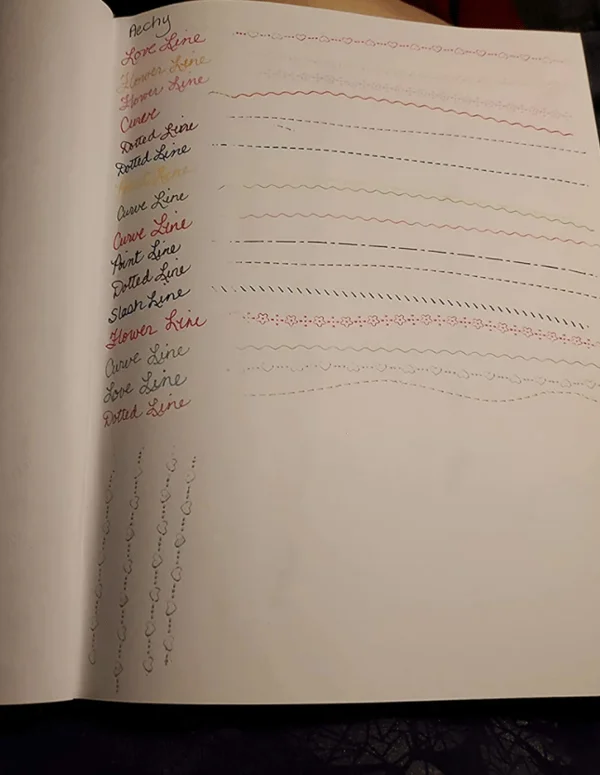 Aechy
Love Line
Flower Line
Flower Line
Curve
Dotted Line
Dotted Line
Line
Curve Line
Curve Line
Aint Line
Dotted Line
Slash Line
Flower Line
Curve Line
Love Line
Dotted Line